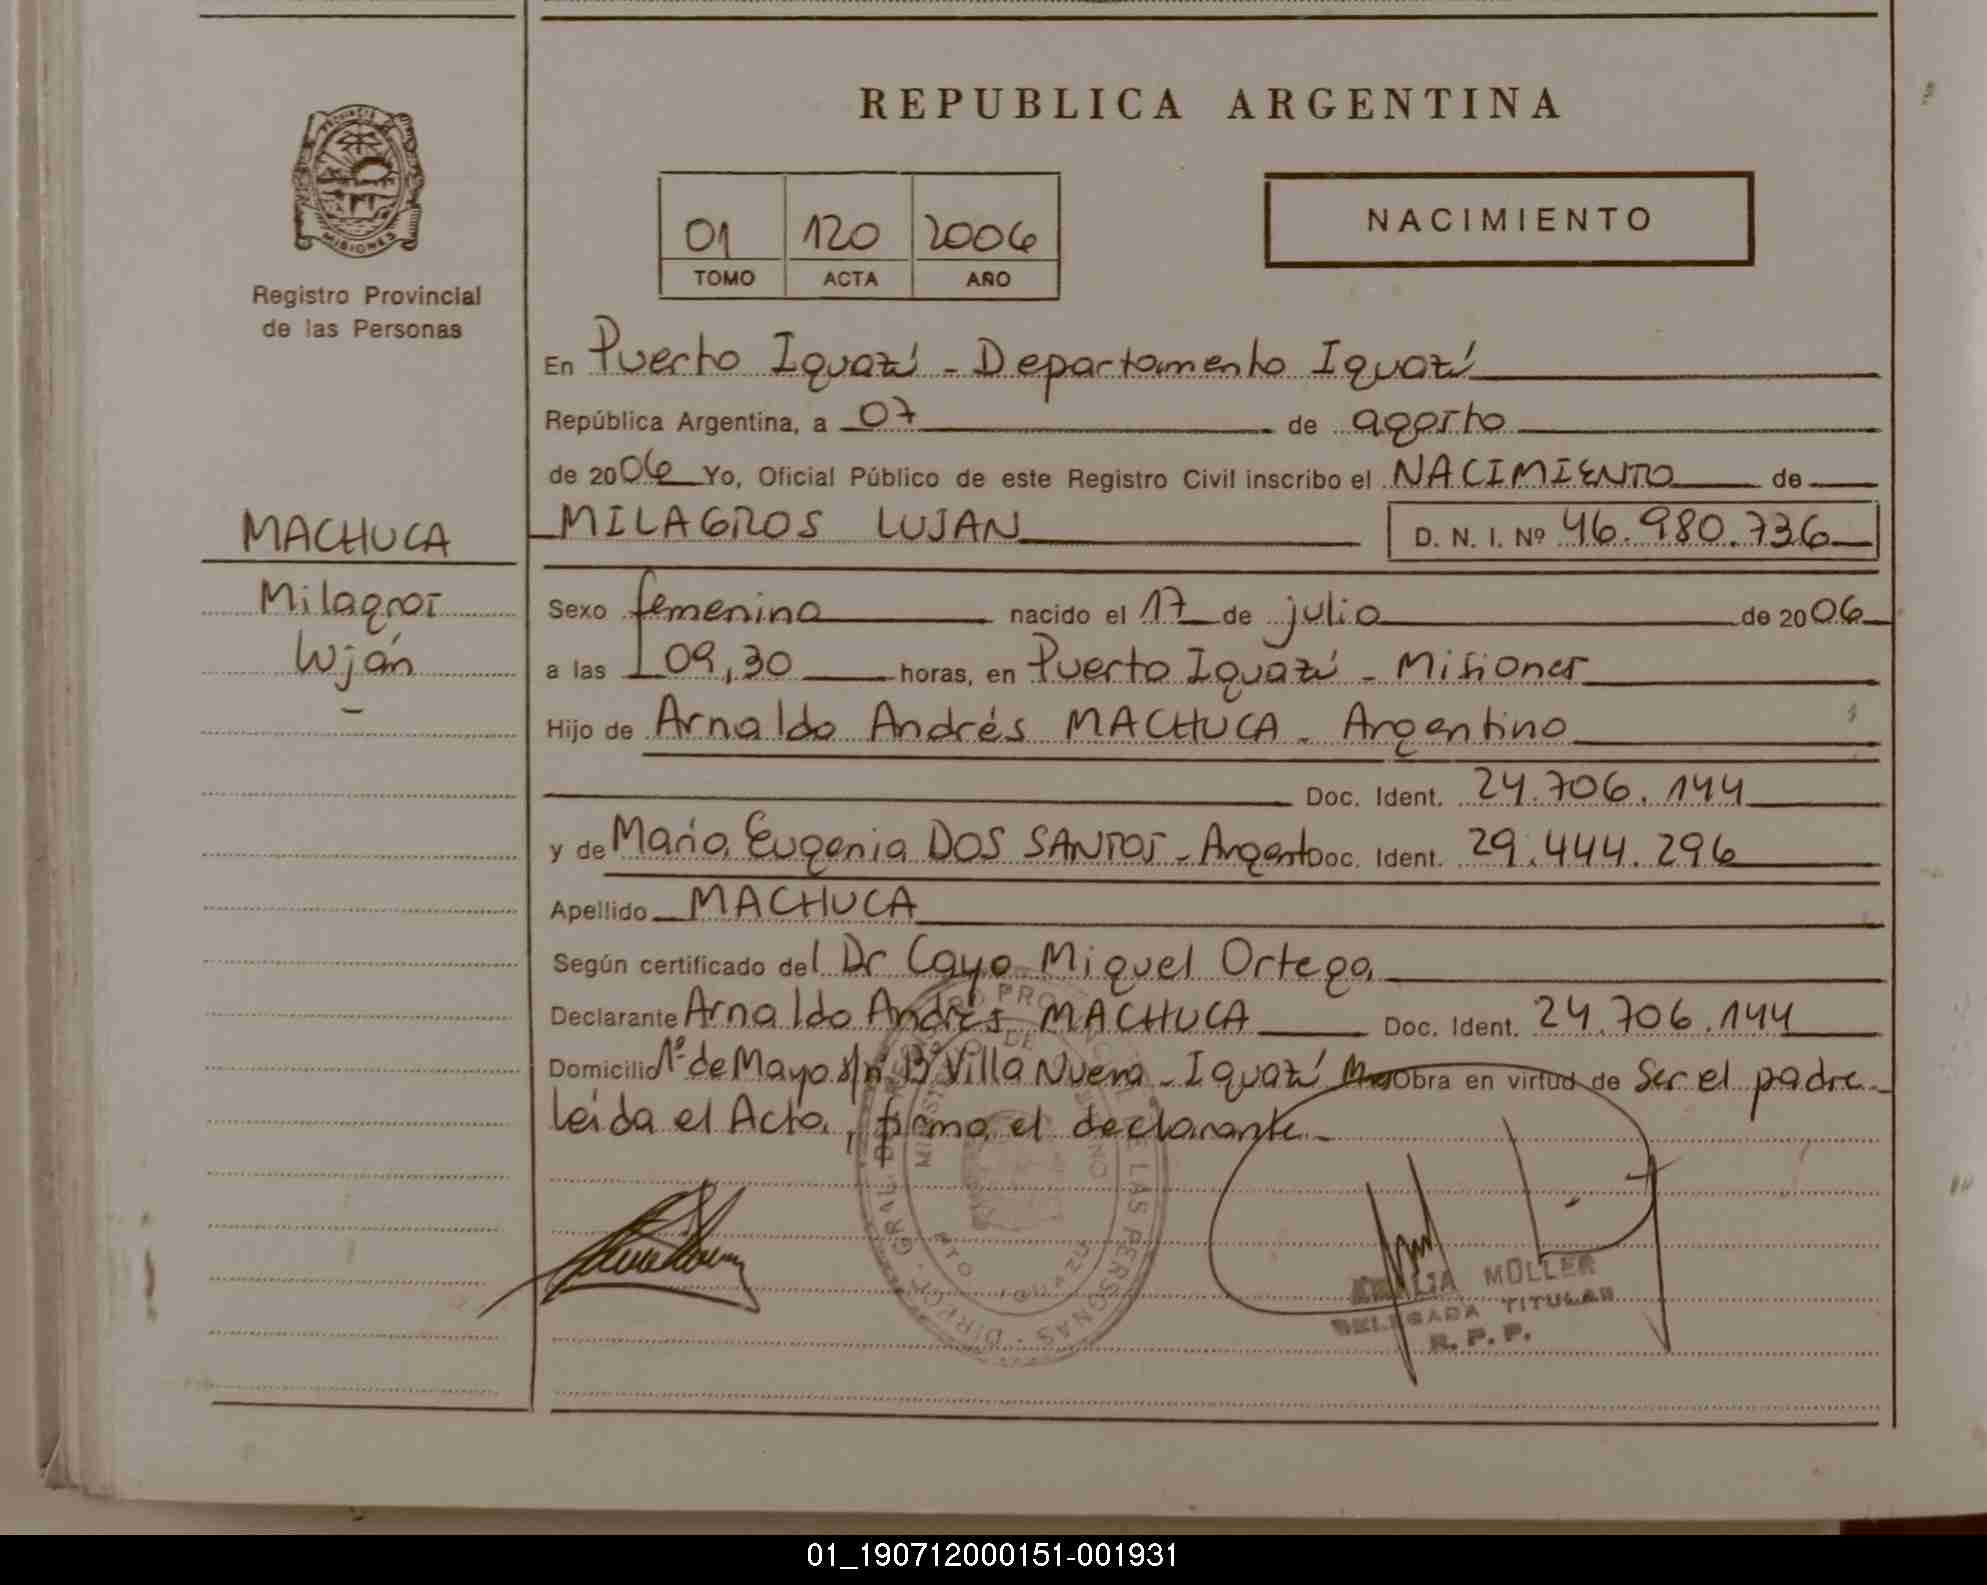 REPUBLICA ARGENTINA
PROVINCIA DE
MISIONES
Registro Provincial
de las Personas
01 120 2006
TOMO ACTA AÑO
NACIMIENTO
En Puerto Iguazú - Departamento Iguazú
República Argentina, a 07 de agosto
de 2006 Yo, Oficial Público de este Registro Civil inscribo el NACIMIENTO de
MACHUCA
Milagros
Luján
-
MILAGROS LUJAN D. N. I. Nº 46.980.736
Sexo femenino nacido el 17 de julio de 2006
a las 09,30 horas, en Puerto Iguazú - Misiones
Hijo de Arnaldo Andrés MACHUCA - Argentino
Doc. Ident. 24.706.144
y de María Eugenia DOS SANTOS - Argent Doc. Ident. 29.444.296
Apellido MACHUCA
Según certificado del Dr Cayo Miguel Ortega
Declarante Arnaldo Andrés MACHUCA Doc. Ident. 24.706.144
Domicilio 1º de Mayo s/n Bº Villa Nueva - Iguazú Obra en virtud de ser el padre -
leída el Acta, firma el declarante -
DIRECC. GRAL. DEL REGISTRO PROVINCIAL DE LAS PERSONAS
MINISTERIO DE GOBIERNO
PTO IGUAZU
MÜLLER
DELEGADA TITULAR
R. P. P.
01_190712000151-001931